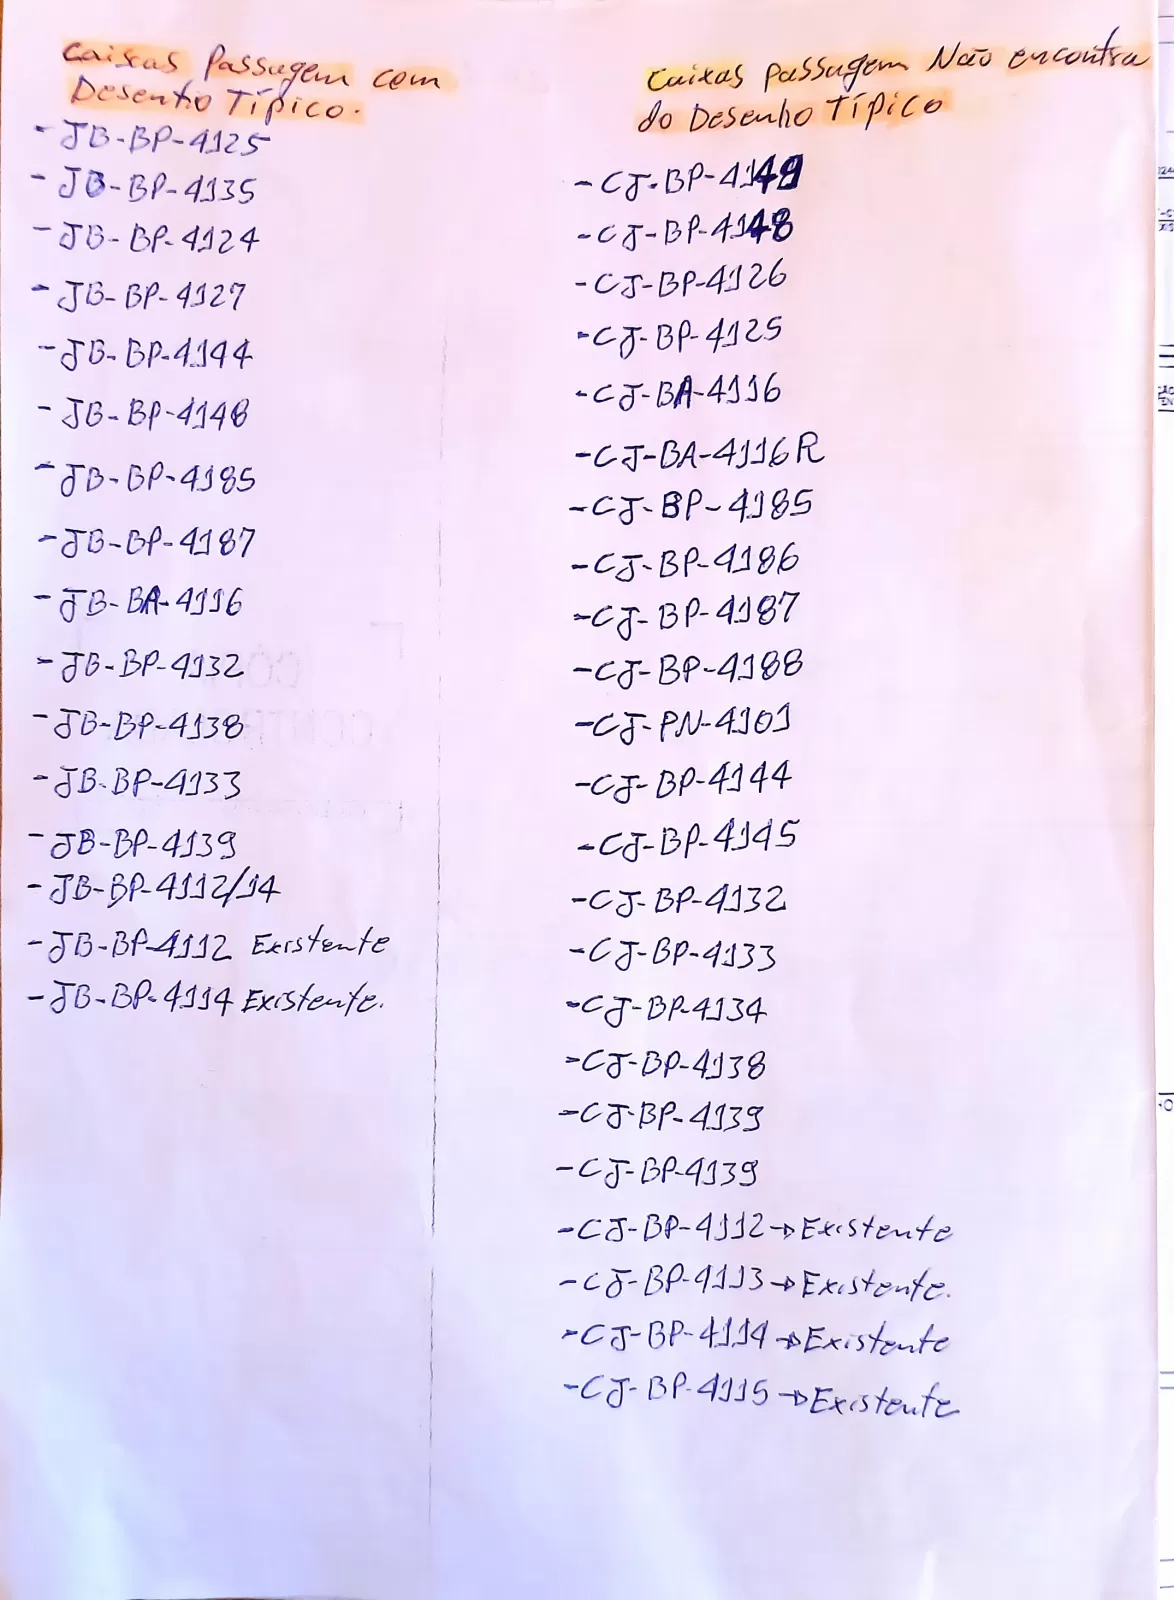 Caixas Passagem com
Desenho Típico.
- JB-BP-4125
- JB-BP-4135
- JB-BP-4124
- JB-BP-4127
- JB-BP-4144
- JB-BP-4148
- JB-BP-4185
- JB-BP-4187
- JB-BA-4116
- JB-BP-4132
- JB-BP-4138
- JB-BP-4133
- JB-BP-4139
- JB-BP-4112/14
- JB-BP-4112 Existente
- JB-BP-4114 Existente.
Caixas passagem Não encontra
do Desenho Típico
- CJ-BP-4149
- CJ-BP-4148
- CJ-BP-4126
- CJ-BP-4125
- CJ-BA-4116
- CJ-BA-4116R
- CJ-BP-4185
- CJ-BP-4186
- CJ-BP-4187
- CJ-BP-4188
- CJ-PN-4101
- CJ-BP-4144
- CJ-BP-4145
- CJ-BP-4132
- CJ-BP-4133
- CJ-BP-4134
- CJ-BP-4138
- CJ-BP-4139
- CJ-BP-4139
- CJ-BP-4112 → Existente
- CJ-BP-4113 → Existente.
- CJ-BP-4114 → Existente
- CJ-BP-4115 → Existente